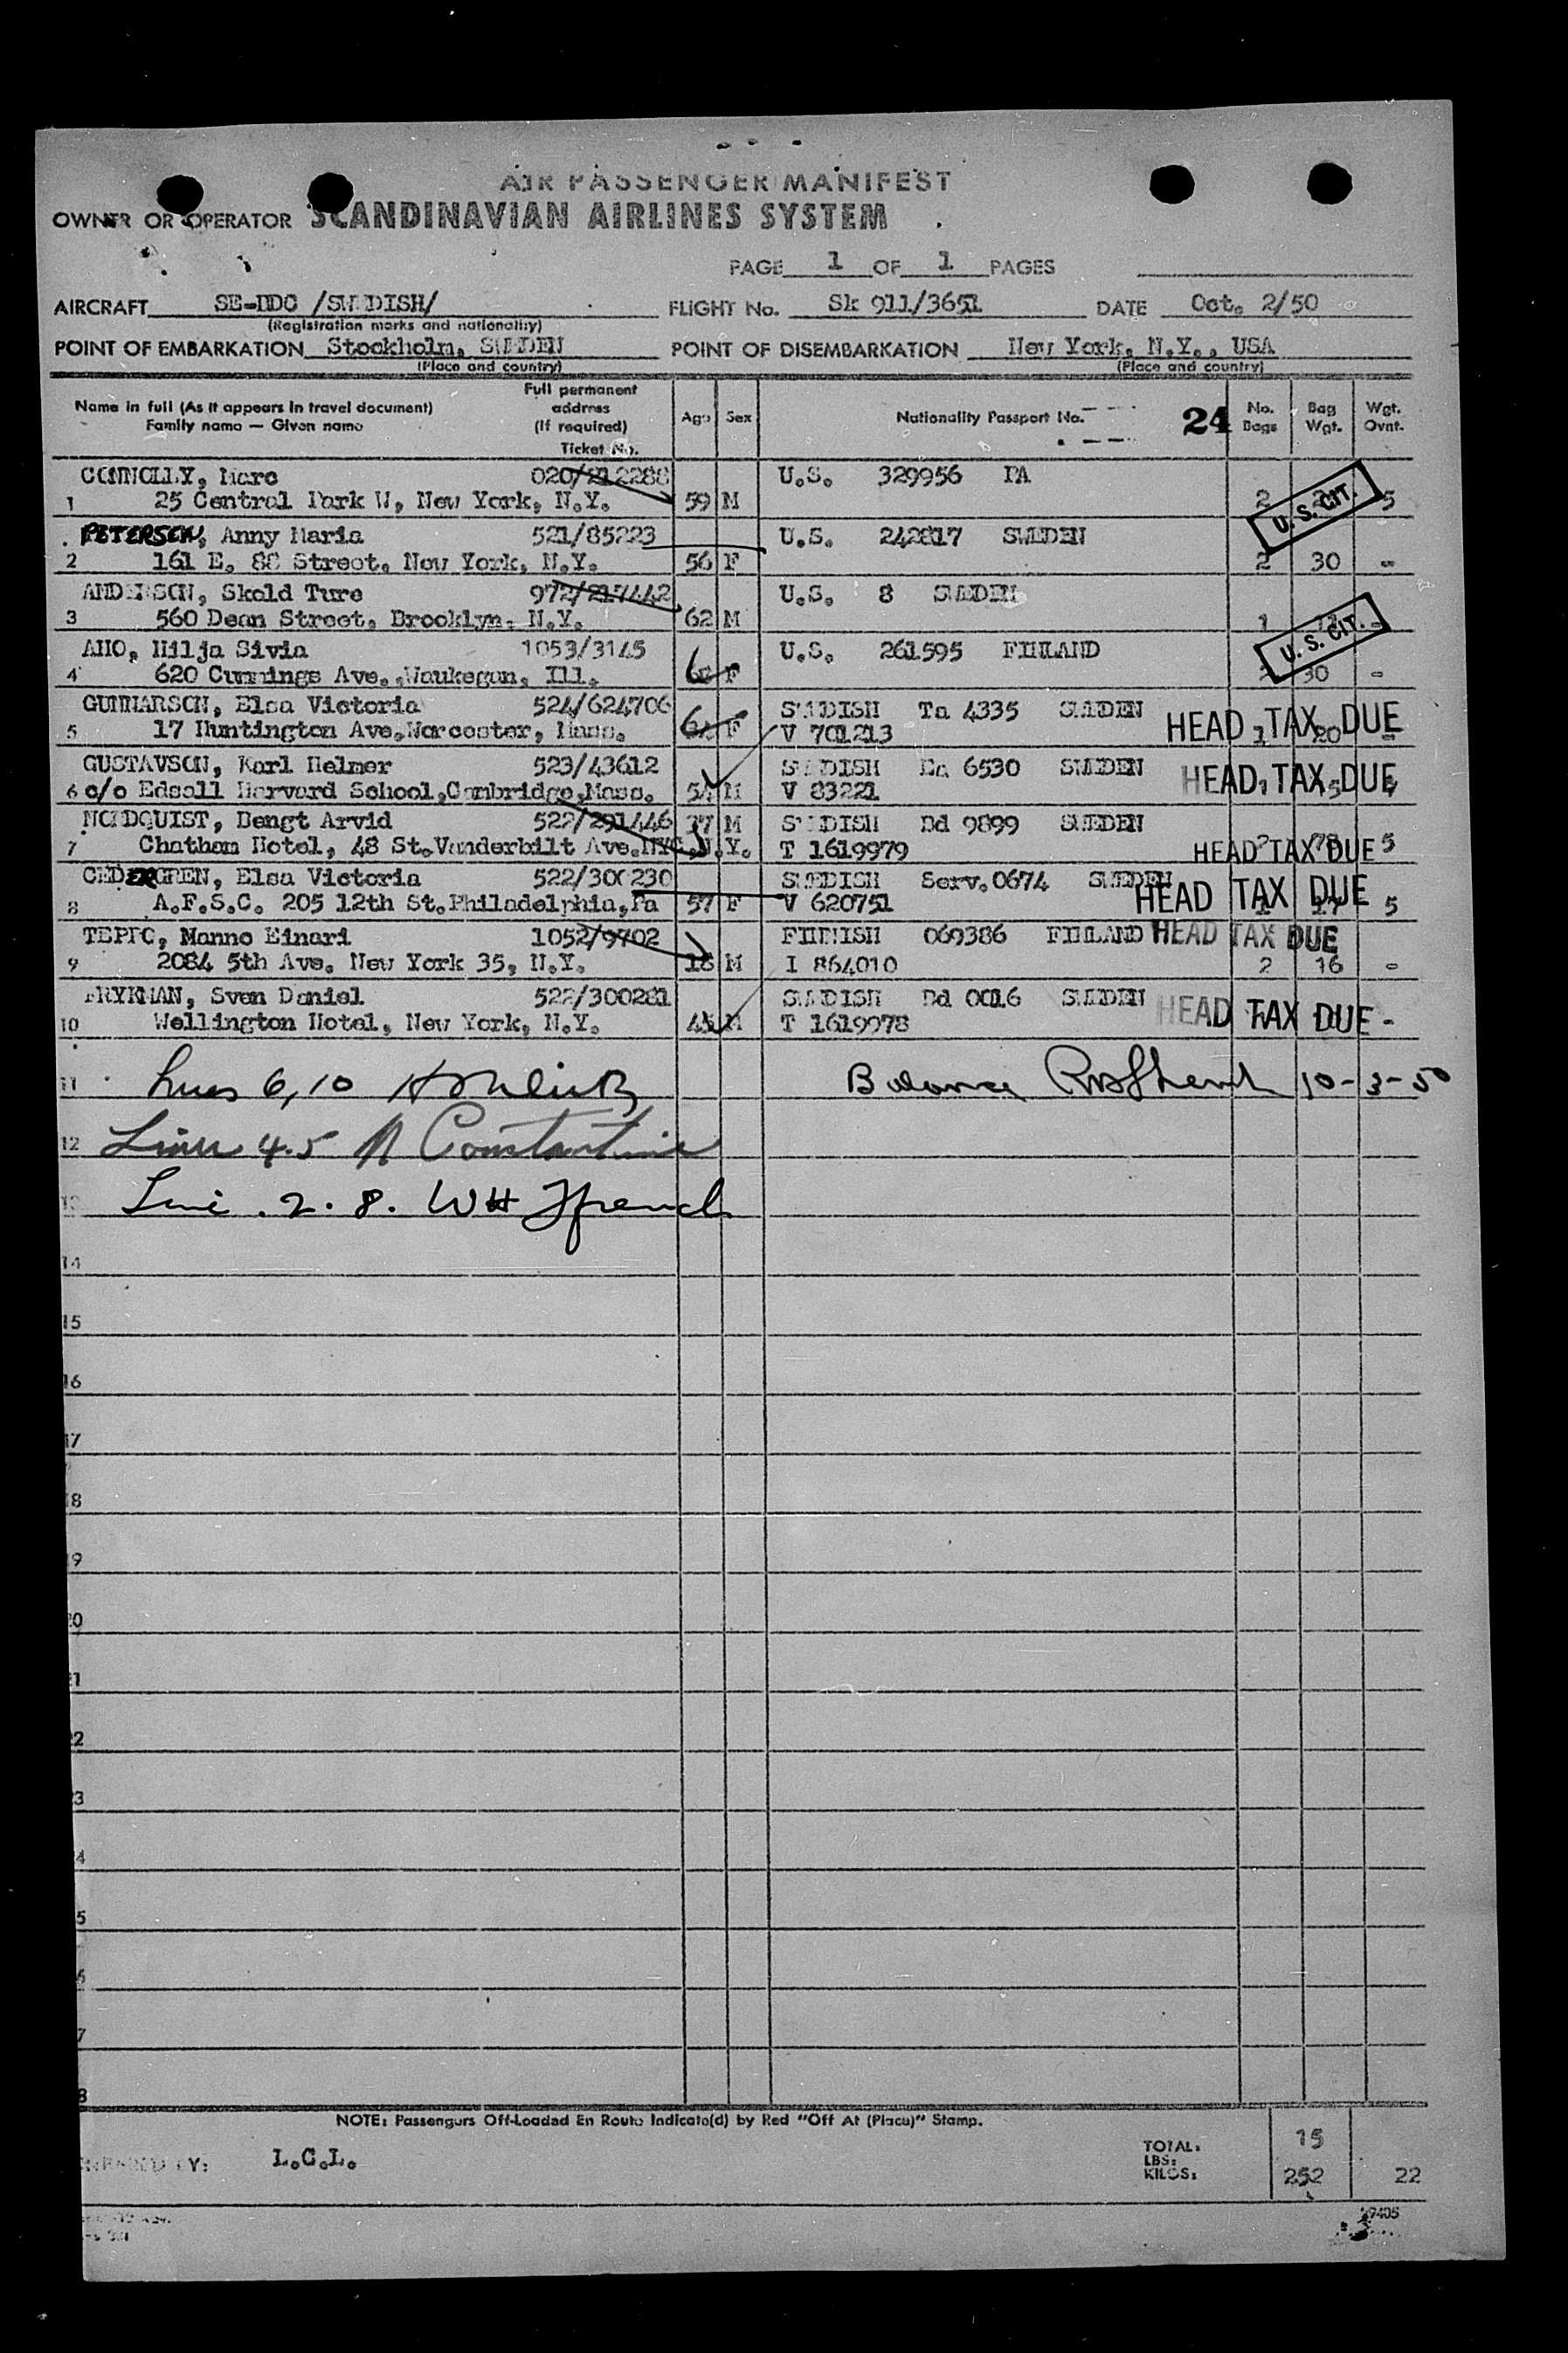 AIR PASSENGER MANIFEST
OWNER OR OPERATOR SCANDINAVIAN AIRLINES SYSTEM
PAGE 1 OF 1 PAGES
AIRCRAFT SE-BDC /SWEDISH/ FLIGHT No. Sk 911/3651 DATE Oct. 2/50
(Registration marks and nationality)
POINT OF EMBARKATION Stockholm, SWEDEN POINT OF DISEMBARKATION New York, N.Y., USA
(Place and country) (Place and country)
Name in full (As it appears in travel document) Family name — Given name Full permanent address (If required) Ticket No. Age Sex Nationality Passport No. 24 No. Bags Bag Wgt. Wgt. Ovnt.
CONNOLLY, Marc 020/212288 U.S. 329956 PA
1 25 Central Park W, New York, N.Y. 59 M 2 U. S. CIT. 5
PETERSEN, Anny Maria 521/85223 U.S. 242817 SWEDEN
2 161 E. 88 Street, New York, N.Y. 56 F 2 30 -
ANDERSON, Skold Ture 972/217442 U.S. 8 SWEDEN
3 560 Dean Street, Brooklyn, N.Y. 62 M 1 U. S. CIT.
AHO, Hilja Sivia 1053/3145 U.S. 261595 FINLAND
4 620 Cummings Ave., Waukegan, Ill. F 30 -
GUNNARSON, Elsa Victoria 524/624706 SWEDISH Ta 4335 SWEDEN
5 17 Huntington Ave., Worcester, Mass. F V 701213 HEAD TAX DUE 20 -
GUSTAVSON, Karl Helmer 523/43612 SWEDISH Ea 6530 SWEDEN
6 c/o Edsall Harvard School, Cambridge, Mass. M V 83221 HEAD TAX DUE
NORDQUIST, Bengt Arvid 522/291446 37 M SWEDISH Bd 9899 SWEDEN
7 Chatham Hotel, 48 St. Vanderbilt Ave. NYC, N.Y. T 1619979 HEAD TAX DUE 5
CEDERGREN, Elsa Victoria 522/300230 SWEDISH Serv. 0674 SWEDEN
8 A.F.S.C. 205 12th St. Philadelphia, Pa 57 F V 620751 HEAD TAX DUE 5
TEPPO, Manno Einari 1052/9702 FINNISH 069386 FINLAND HEAD TAX DUE
9 2084 5th Ave. New York 35, N.Y. 18 M I 864010 2 16 -
FRYKMAN, Sven Daniel 522/300281 SWEDISH Bd 0016 SWEDEN
10 Wellington Hotel, New York, N.Y. M T 1619978 HEAD TAX DUE -
11 Lines 6, 10 Balance 10-3-50
12 Lines 4.5 N Constantine
13 Line . 2 . 8 . WH French
14
15
16
17
18
19
20
21
22
23
24
25
26
27
28
NOTE: Passengers Off-Loaded En Route Indicate(d) by Red "Off At (Place)" Stamp.
PREPARED BY: L.C.L. TOTAL: 15
LBS:
KILOS: 252 22